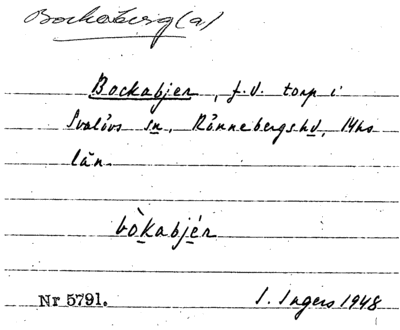 Bockaberg(a)
Bockabjer, f.d. torp i
Svalövs sn, Rönnebergs hd, Mhs
län.
bòkabjér
Nr 5791. I. Ingers 1948